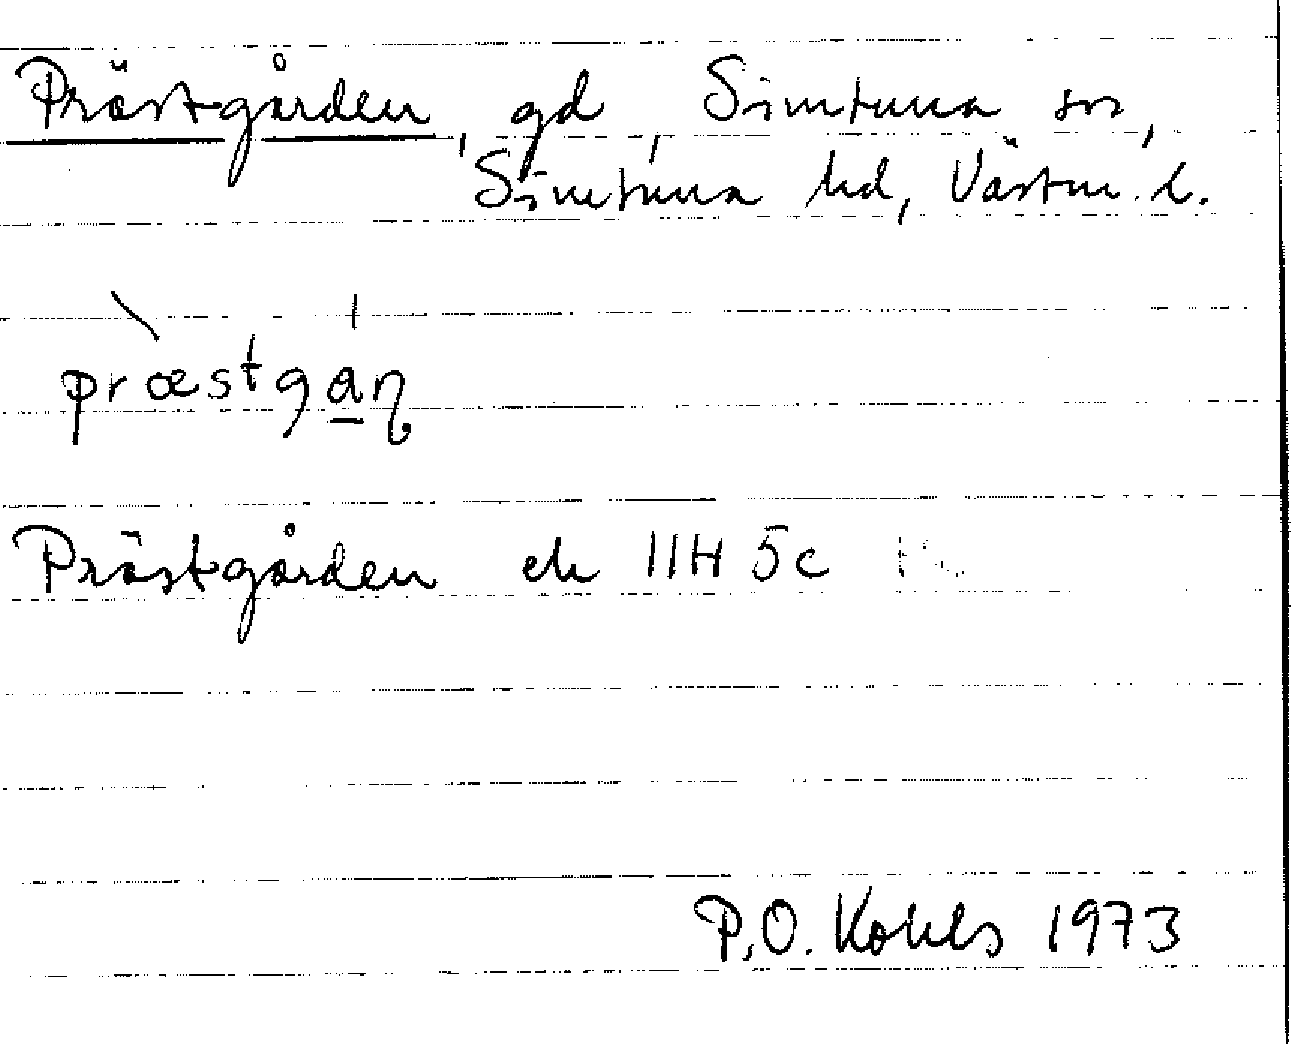 Prästgården, gd, Simtuna sn,
Simtuna hd, Västm. l.
præstga̲ɳ
Prästgården ek 11H 5c
P.O. Kohls 1973